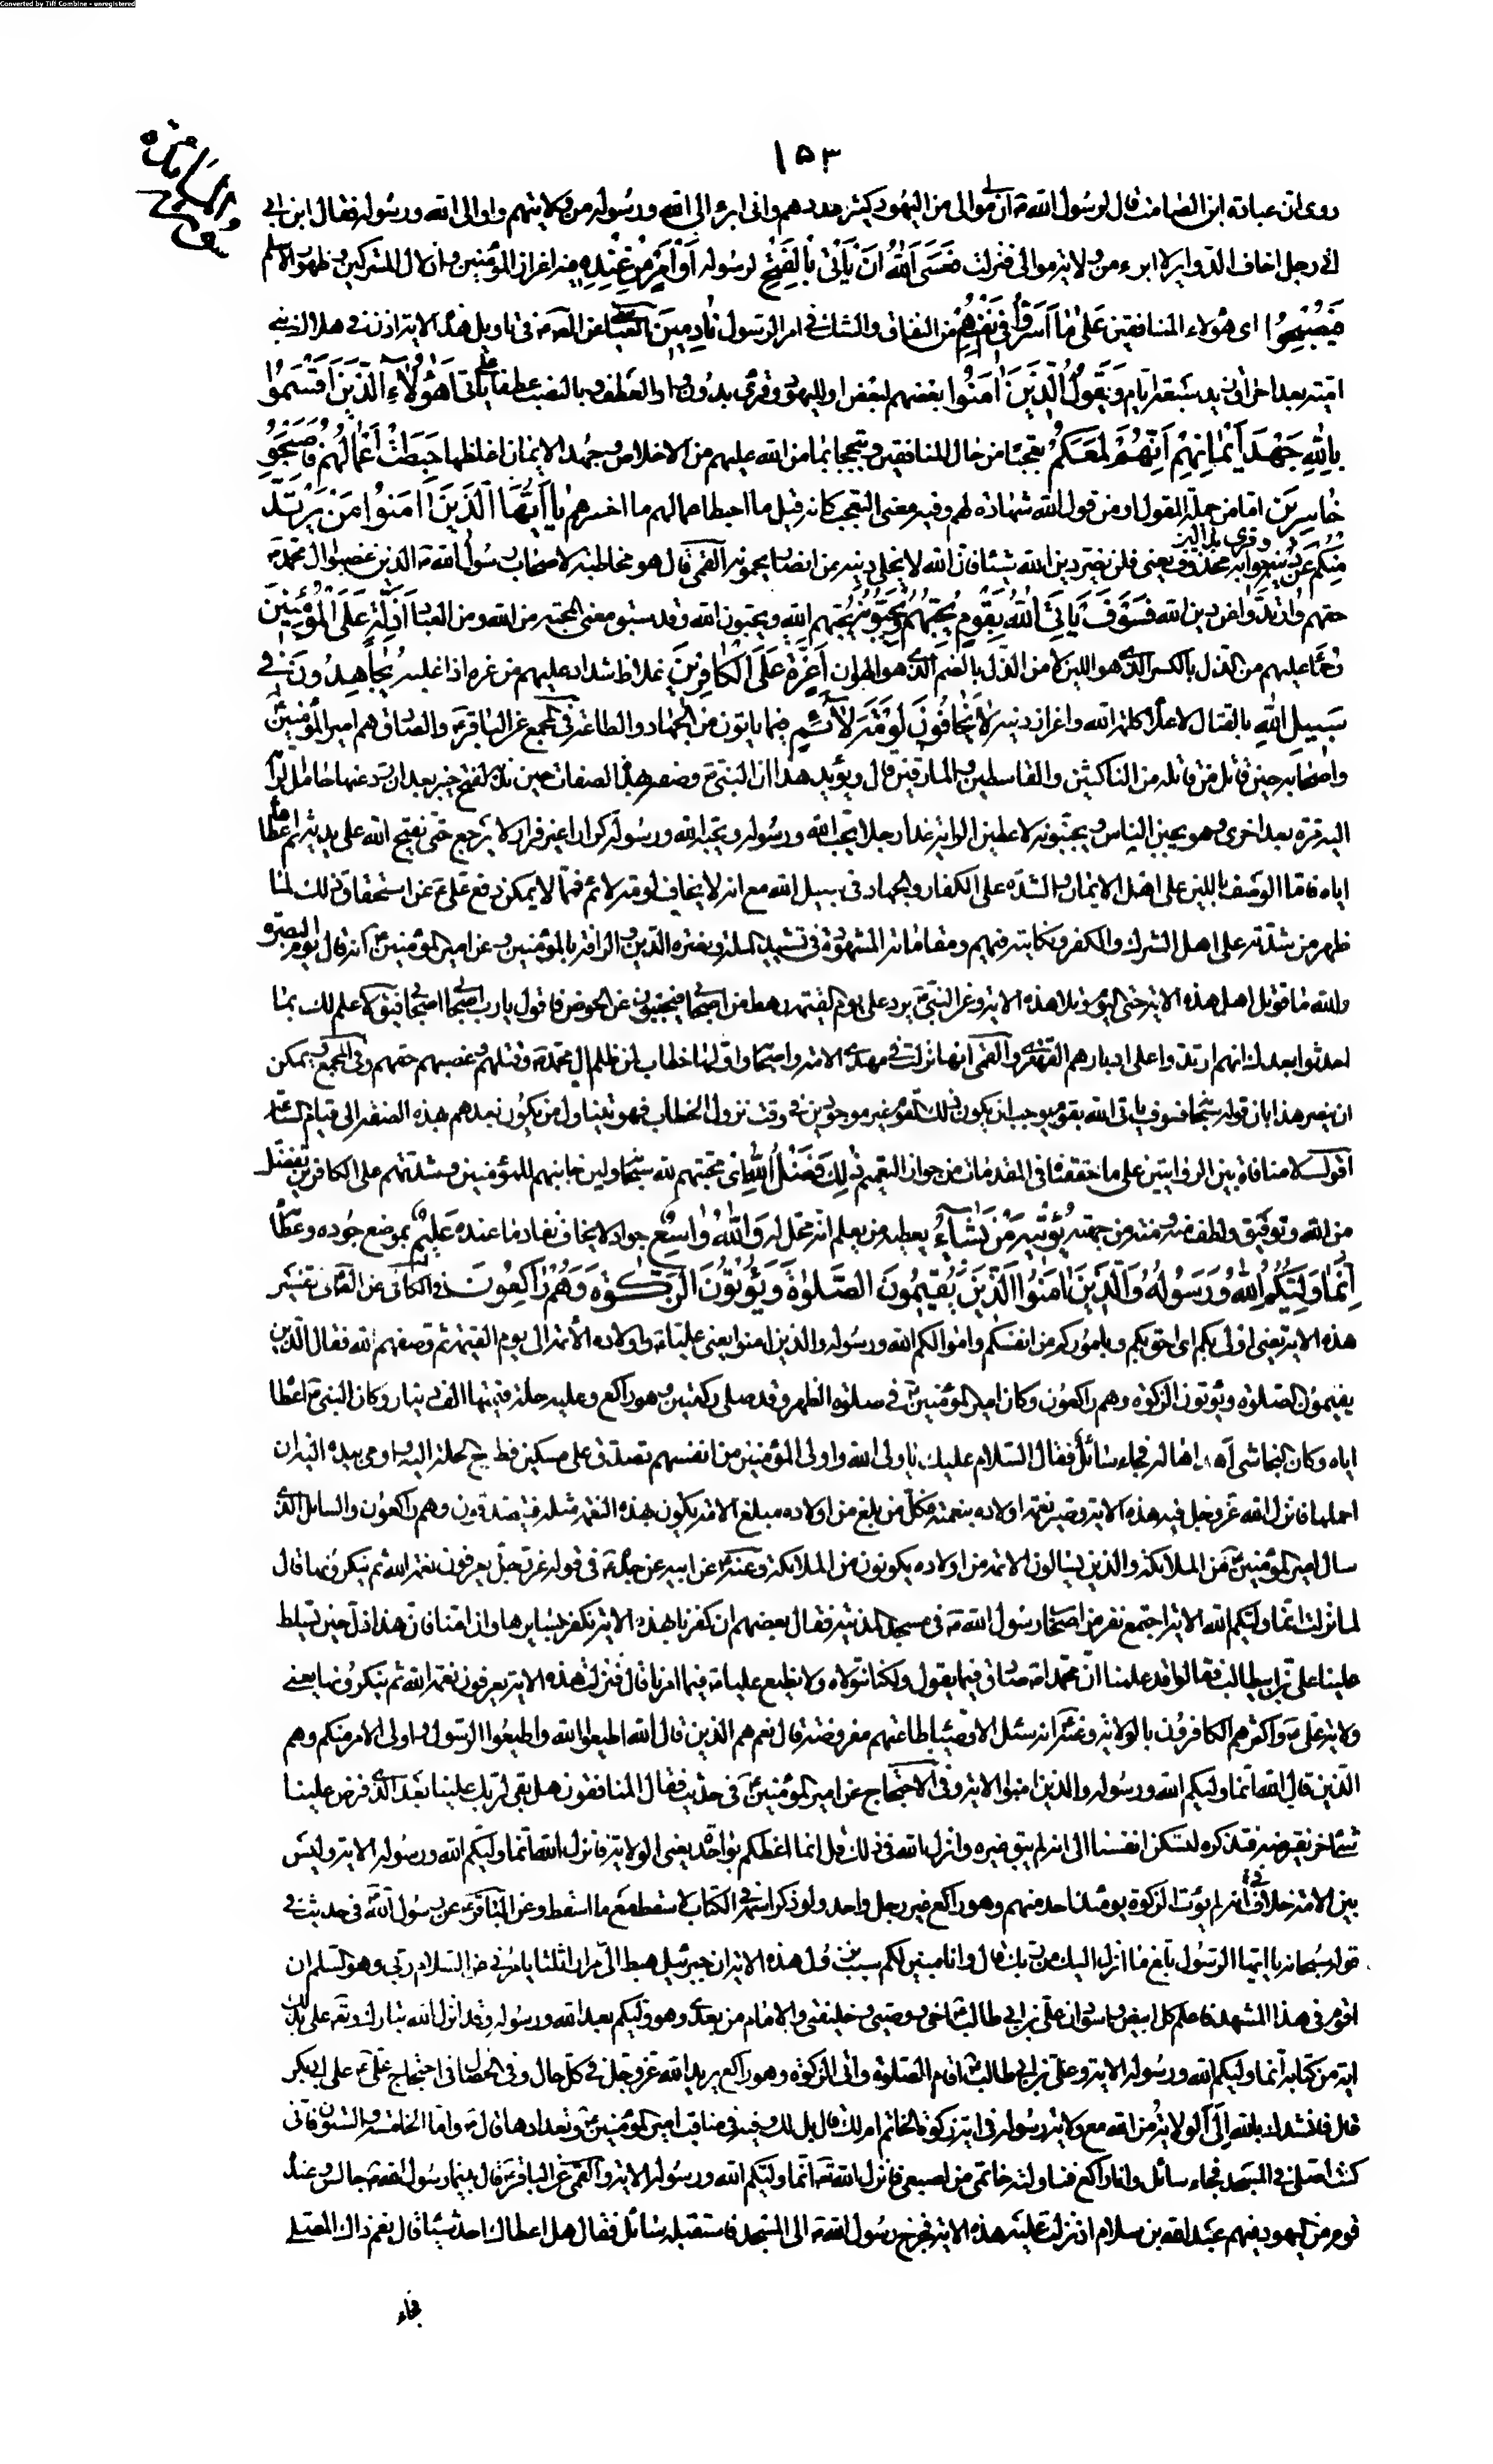 Converted by Tiff Combine - unregistered
١٥٣
سورة المائدة
روى ان عبادة ابن الصامت قال لرسول الله ص ان لي موالى من اليهود كثير عددهم وانى ابرء الى الله ورسوله من ولايتهم واوالى الله ورسوله فقال ابن ابي
انى رجل اخاف الدوائر لا ابرء من ولاية موالى فنزلت فَعَسَى اللَّهُ اَنْ يَأْتِىَ بِالْفَتْحِ لرسوله اَوْ اَمْرٍ مِنْ عِنْدِهِ فيه اعزاز المؤمنين واذلال المشركين وظهور الاسلام
فَيُصْبِحُوا اى هؤلاء المنافقين عَلى ما اَسَرُّوا فى اَنْفُسِهِمْ من النفاق والشك فى امر الرسول نادِمينَ العياشى عن الصادق ع فى تاويل هذه الاية اذن فى هلاك بنى
امية بعد احراق زيد سبعة ايام وَيَقُولُ الَّذينَ امَنُوا بعضهم لبعض او لليهود وقرئ بدون واو العطف وبالنصب عطفا على يأتى اَهؤُلاءِ الَّذينَ اَقْسَمُوا
بِاللَّهِ جَهْدَ اَيْمانِهِمْ اِنَّهُمْ لَمَعَكُمْ تعجبا من حال المنافقين وتبجحا بما من الله عليهم من الاخلاص وجهد الايمان اغلظها حَبِطَتْ اَعْمالُهُمْ فَاَصْبَحُوا
خاسِرينَ اما من جملة المقول او من قول الله شهادة لهم وفيه معنى التعجب كانه قيل ما احبط اعمالهم ما اخسرهم يا اَيُّهَا الَّذينَ امَنُوا مَنْ يَرْتَدَّ
مِنْكُمْ عَنْ دينِهِ جوابه محذوف يعنى فلن يضر دين الله شيئا فان الله لا يخلى دينه من انصار يحمونه القمى قال هو مخاطبة لاصحاب رسول الله ص الذين غصبوا ال محمد ص
حقهم وارتدوا عن دين الله فَسَوْفَ يَاْتِى اللَّهُ بِقَوْمٍ يُحِبُّهُمْ وَيُحِبُّونَهُ يحبهم الله ويحبون الله وقد سبق معنى المحبة من الله ومن العباد اَذِلَّةٍ عَلَى الْمُؤْمِنينَ
رحماء عليهم من الذل بالكسر الذى هو اللين لا من الذل بالضم الذى هو الهوان اَعِزَّةٍ عَلَى الْكافِرينَ غلاظ شداد عليهم من عزه اذا غلبه يُجاهِدُونَ فى
سَبيلِ اللَّهِ بالقتال لاعلاء كلمة الله واعزاز دينه لا يَخافُونَ لَوْمَةَ لائِمٍ فيما ياتون من الجهاد والطاعة فى المجمع عن الباقر ع والصادق هم امير المؤمنين ع
واصحابه حين قاتل من قاتله من الناكثين والقاسطين والمارقين قال ويؤيد هذا ان النبى ص وصفه بهذه الصفات حين ندبه لفتح خيبر بعد ان رد عنها حامل الراية
اليه مرة بعد اخرى وهو يجبن الناس ويجبنونه لاعطين الراية غدا رجلا يحب الله ورسوله ويحبه الله ورسوله كرارا غير فرار لا يرجع حتى يفتح الله على يديه ثم اعطاها
اياه فاما الوصف باللين على اهل الايمان والشدة على الكفار والجهاد فى سبيل الله مع انه لا يخاف لومة لائم فمما لا يمكن دفع على ع عن استحقاق ذلك لما
ظهر من شدته على اهل الشرك والكفر ونكايته فيهم ومقاماته المشهورة فى تشييد الملة ونصرة الدين والرافة بالمؤمنين وعن امير المؤمنين ع انه قال يوم البصرة
والله ما قوتل اهل هذه الاية حتى اليوم وتلا هذه الاية وعن النبى ص يرد على يوم القيمة رهط من اصحابى فيجلون عن الحوض فاقول يا رب اصحابى اصحابى فيق لا علم لك بما
احدثوا بعدك انهم ارتدوا على ادبارهم القهقرى والقمى انها نزلت فى مهدى الامة واصحابه واولها خطاب لمن ظلم ال محمد ص وقتلهم وغصبهم حقهم وفى المجمع ويمكن
ان ينصر هذا بان قوله سبحانه فسوف ياتى الله بقوم يوجب ان يكون ذلك القوم غير موجودين فى وقت نزول الخطاب فهو يتناول من يكون بعدهم بهذه الصفة الى قيام الساعة
اقول لا منافاة بين الروايتين على ما حققناه فى المقدمات من جواز التعميم ذلِكَ فَضْلُ اللَّهِ اى محبتهم لله سبحانه ولين جانبهم للمؤمنين وشدتهم على الكافرين تفضل
من الله وتوفيق ولطف منه ومنة من جهته يُؤْتيهِ مَنْ يَشاءُ يعطيه من يعلم انه محل له وَاللَّهُ واسِعٌ جواد لا يخاف نفاد ما عنده عَليمٌ بموضع جوده وعطائه
اِنَّما وَلِيُّكُمُ اللَّهُ وَرَسُولُهُ وَالَّذينَ امَنُوا الَّذينَ يُقيمُونَ الصَّلوةَ وَيُؤْتُونَ الزَّكوةَ وَهُمْ راكِعُونَ فى الكافى عن الصادق فى تفسير
هذه الاية يعنى اولى بكم اى احق بكم وباموركم من انفسكم واموالكم الله ورسوله والذين امنوا يعنى عليا ع واولاده الائمة الى يوم القيمة ثم وصفهم الله فقال الذين
يقيمون الصلوة ويؤتون الزكوة وهم راكعون وكان امير المؤمنين ع فى صلوة الظهر وقد صلى ركعتين وهو راكع وعليه حلة قيمتها الف دينار وكان النبى ص اعطاه
اياه وكان النجاشى اهداها له فجاء سائل فقال السلام عليك يا ولى الله واولى المؤمنين من انفسهم تصدق على مسكين فطرح الحلة اليه واومى بيده اليه ان
احملها فانزل الله عز وجل فيه هذه الاية وصير نعمة اولاده بنعمته فكل من بلغ من اولاده مبلغ الامة يكون بهذه النعمة مثله فيتصدقون وهم راكعون والسائل الذى
سال امير المؤمنين ع من الملائكة والذين يسالون الائمة من اولاده يكونون من الملائكة وعنه ع عن ابيه عن جده ع فى قوله عز وجل يعرفون نعمة الله ثم ينكرونها قال
لما نزلت انما وليكم الله الاية اجتمع نفر من اصحاب رسول الله ص فى مسجد المدينة فقال بعضهم ان كفرنا بهذه الاية نكفر بسايرها وان امنا فان هذا ذل حين يسلط
علينا على بن ابيطالب فقالوا قد علمنا ان محمدا ص صادق فيما يقول ولكنا نتولاه ولا نطيع عليا ع فيما امرنا قال فنزلت هذه الاية يعرفون نعمة الله ثم ينكرونها يعنى
ولاية على ع واكثرهم الكافرون بالولاية وعنه ع انه سئل الاوصياء طاعتهم مفروضة قال نعم هم الذين قال الله اطيعوا الله واطيعوا الرسول واولى الامر منكم وهم
الذين قال الله انما وليكم الله ورسوله والذين امنوا الاية وفى الاحتجاج عن امير المؤمنين ع فى حديث فقال المنافقون هل بقى لربك علينا بعد الذى فرض علينا
شئ اخر يفرضه فتذكره لتسكن انفسنا الى انه لم يبق غيره فانزل الله فى ذلك قل انما اعظكم بواحدة يعنى الولاية فانزل الله انما وليكم الله ورسوله الاية وليس
بين الامة خلاف انه لم يؤت الزكوة يومئذ احد منهم وهو راكع غير رجل واحد ولو ذكر اسمه فى الكتاب لاسقط مع ما اسقط وعن الباقر ع عن رسول الله ص فى حديث فى
قوله سبحانه يا ايها الرسول بلغ ما انزل اليك من ربك قال وانا مبين لكم سبب نزول هذه الاية ان جبرئيل هبط الى مرارا ثلثا يامرنى عن السلام ربى وهو السلام ان
اقوم فى هذا المشهد فاعلم كل ابيض واسود ان على بن ابى طالب ع اخى ووصيى وخليفتى والامام من بعدى وهو وليكم بعد الله ورسوله وقد انزل الله تبارك وتعالى على بذلك
اية من كتابه انما وليكم الله ورسوله الاية وعلى بن ابى طالب ع اقام الصلوة واتى الزكوة وهو راكع يريد الله عز وجل فى كل حال وفى الخصال فى احتجاج على ع على ابى بكر
قال فانشدك بالله الى الولاية من الله مع ولاية رسوله فى اية زكوة الخاتم ام لك قال بل لك وفيه فى مناقب امير المؤمنين ع وتعدادها قال ع واما الخامسة والستون فانى
كنت اصلى فى المسجد فجاء سائل وانا راكع فناولته خاتمى من اصبعى فانزل الله تعالى انما وليكم الله ورسوله الاية والقمى عن الباقر ع قال بينما رسول الله ص جالس وعنده
قوم من اليهود فيهم عبد الله بن سلام اذ نزلت عليه هذه الاية فخرج رسول الله ص الى المسجد فاستقبله سائل فقال هل اعطاك احد شيئا قال نعم ذاك المصلى
فجاء